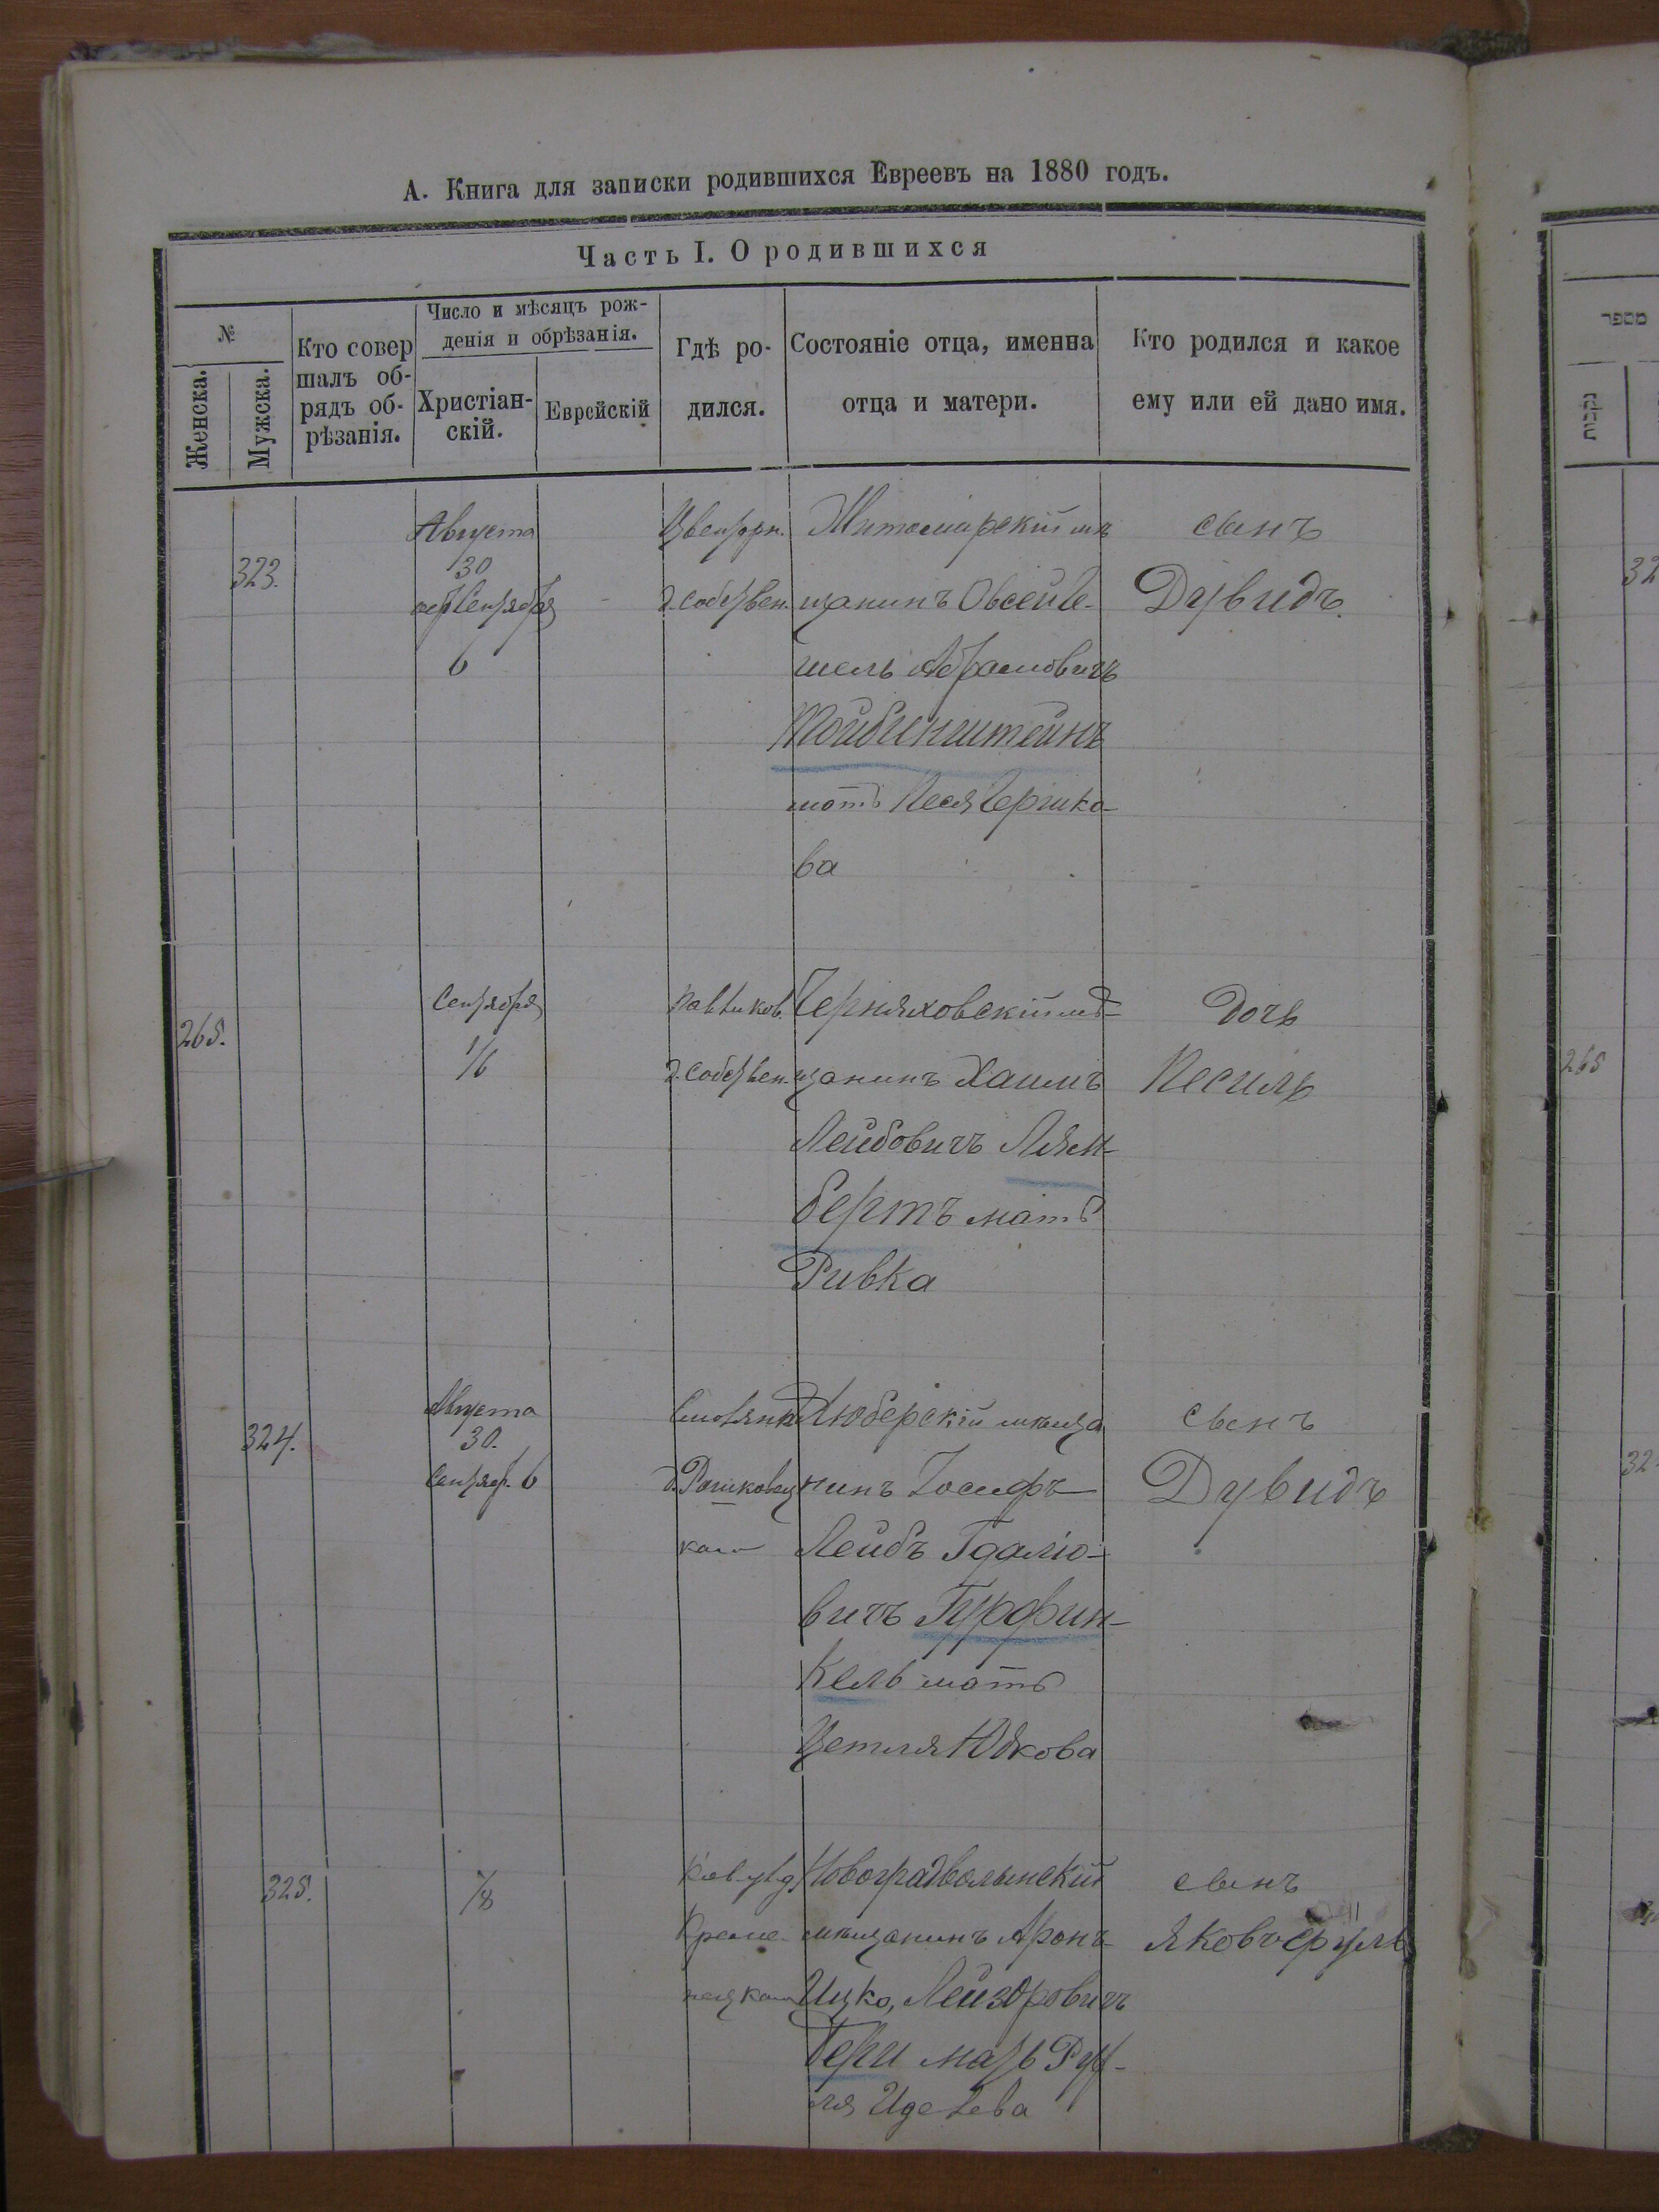 А. Книга для записки родившихся Евреевъ на 1880 годъ.
Часть I. О родившихся
№
Женска.
Мужска.
Кто совер
шалъ об-
рядъ об-
рѣзанія.
Число и мѣсяцъ рож-
денія и обрѣзанія.
Христіан-
скій.
Еврейскій
Гдѣ ро-
дился.
Состояніе отца, именна
отца и матери.
Кто родился и какое
ему или ей дано имя.
323.
Августа
30
Сентября
6
д. собствен.
Житомирскій мѣ
щанинъ Овсей Ге-
шель Абрамовичъ
Тойбинштейнъ
мать Песя Гершко-
ва
сынъ
Дувидъ.
265.
Сентября
1/6
д. собствен.
Черняховскій мѣ-
щанинъ Хаимъ
Лейбовичъ Лям-
бертъ мать
Ривка
дочь
Песиль
324.
Августа
30.
Сентяб. 6
д. Рашковец
каго
Любарскій мѣща
нинъ Іосифъ
Лейбъ Гдаліо-
вичъ Гурфин-
кель мать
Цетля Юдкова
сынъ
Дувидъ
325.
Креме-
нецкаго
Новоградволынскій
мѣщанинъ Аронъ-
Ицко, Лейзоровичъ
Берг мать Рух-
ля
сынъ
Яковъ Сруль
מספר
נקבות
32
265
32